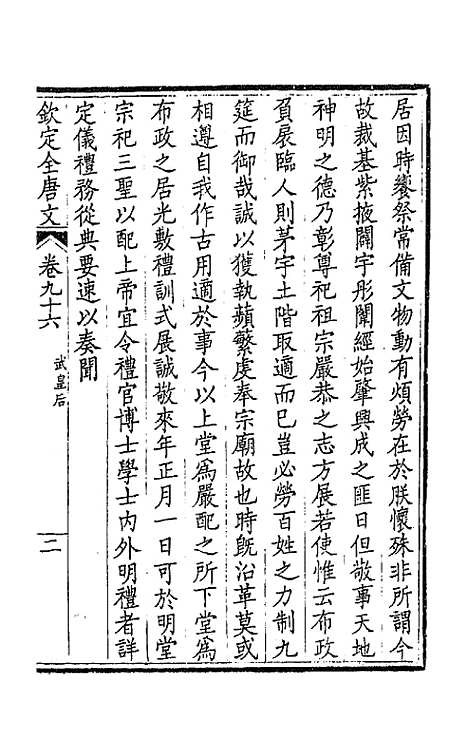 居因時饗祭常備文物動有煩勞在於朕懷殊非所謂今
故裁基紫掖闢宇彤闈經始肇興成之匪日但敬事天地
神明之德乃彰尊祀祖宗嚴恭之志方展若使惟云布政
負扆臨人則茅宇土階取適而已豈必勞百姓之力制九
筵而御哉誠以獲執蘋蘩虔奉宗廟故也時旣沿革莫或
相遵自我作古用適於事今以上堂爲嚴配之所下堂爲
布政之居光敷禮訓式展誠敬來年正月一日可於明堂
宗祀三聖以配上帝宜令禮官博士學士內外明禮者詳
定儀禮務從典要速以奏聞
欽定全唐文
卷九十六
武皇后
二